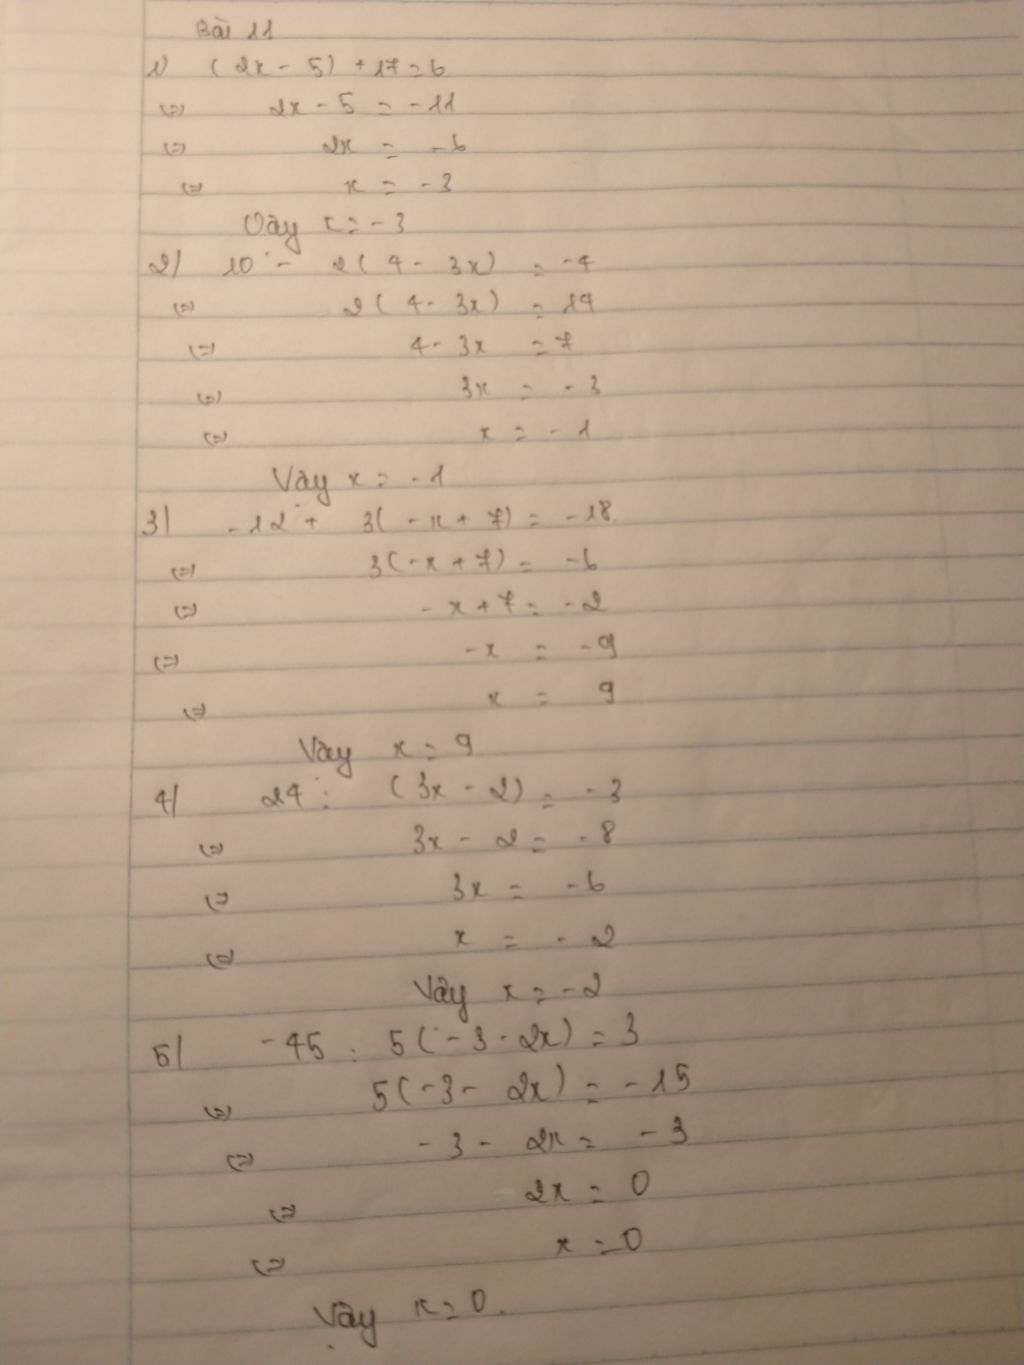 Bài 11
1) (2x - 5) + 17 = 6
(=) 2x - 5 = -11
(=) 2x = -6
(=) x = -3
Vậy x = -3
2) 10 - 2(4 - 3x) = -4
(=) 2(4 - 3x) = 14
(=) 4 - 3x = 7
(=) 3x = -3
(=) x = -1
Vậy x = -1
3) -12 + 3(-x + 7) = -18
(=) 3(-x + 7) = -6
(=) -x + 7 = -2
(=) -x = -9
(=) x = 9
Vậy x = 9
4) 24 : (3x - 2) = -3
(=) 3x - 2 = -8
(=) 3x = -6
(=) x = -2
Vậy x = -2
5) -45 : 5(-3 - 2x) = 3
(=) 5(-3 - 2x) = -15
(=) -3 - 2x = -3
(=) 2x = 0
(=) x = 0
Vậy x = 0.